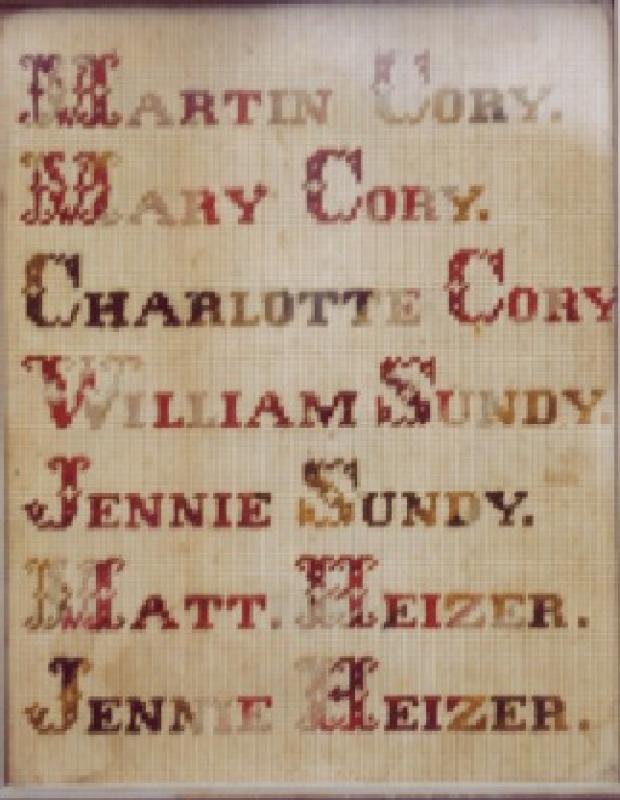 Martin Cory.
Mary Cory.
Charlotte Cory
William Sundy.
Jennie Sundy.
Matt. Heizer.
Jennie Heizer.